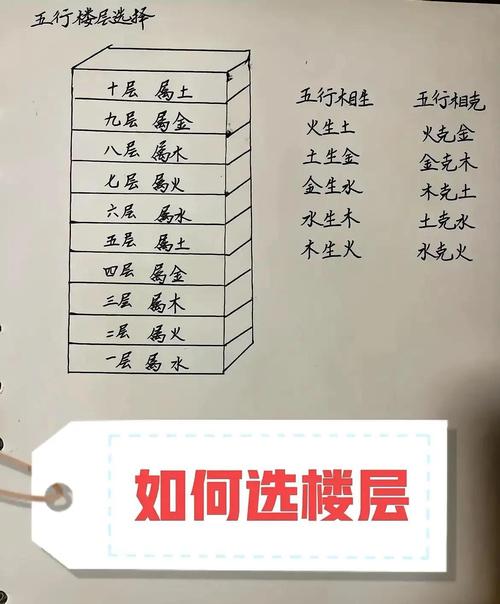 五行楼层选择
十层 属土
九层 属金
八层 属木
七层 属火
六层 属水
五层 属土
四层 属金
三层 属木
二层 属火
一层 属水
五行相生
火生土
土生金
金生水
水生木
木生火
五行相克
火克金
金克木
木克土
土克水
水克火
如何选楼层